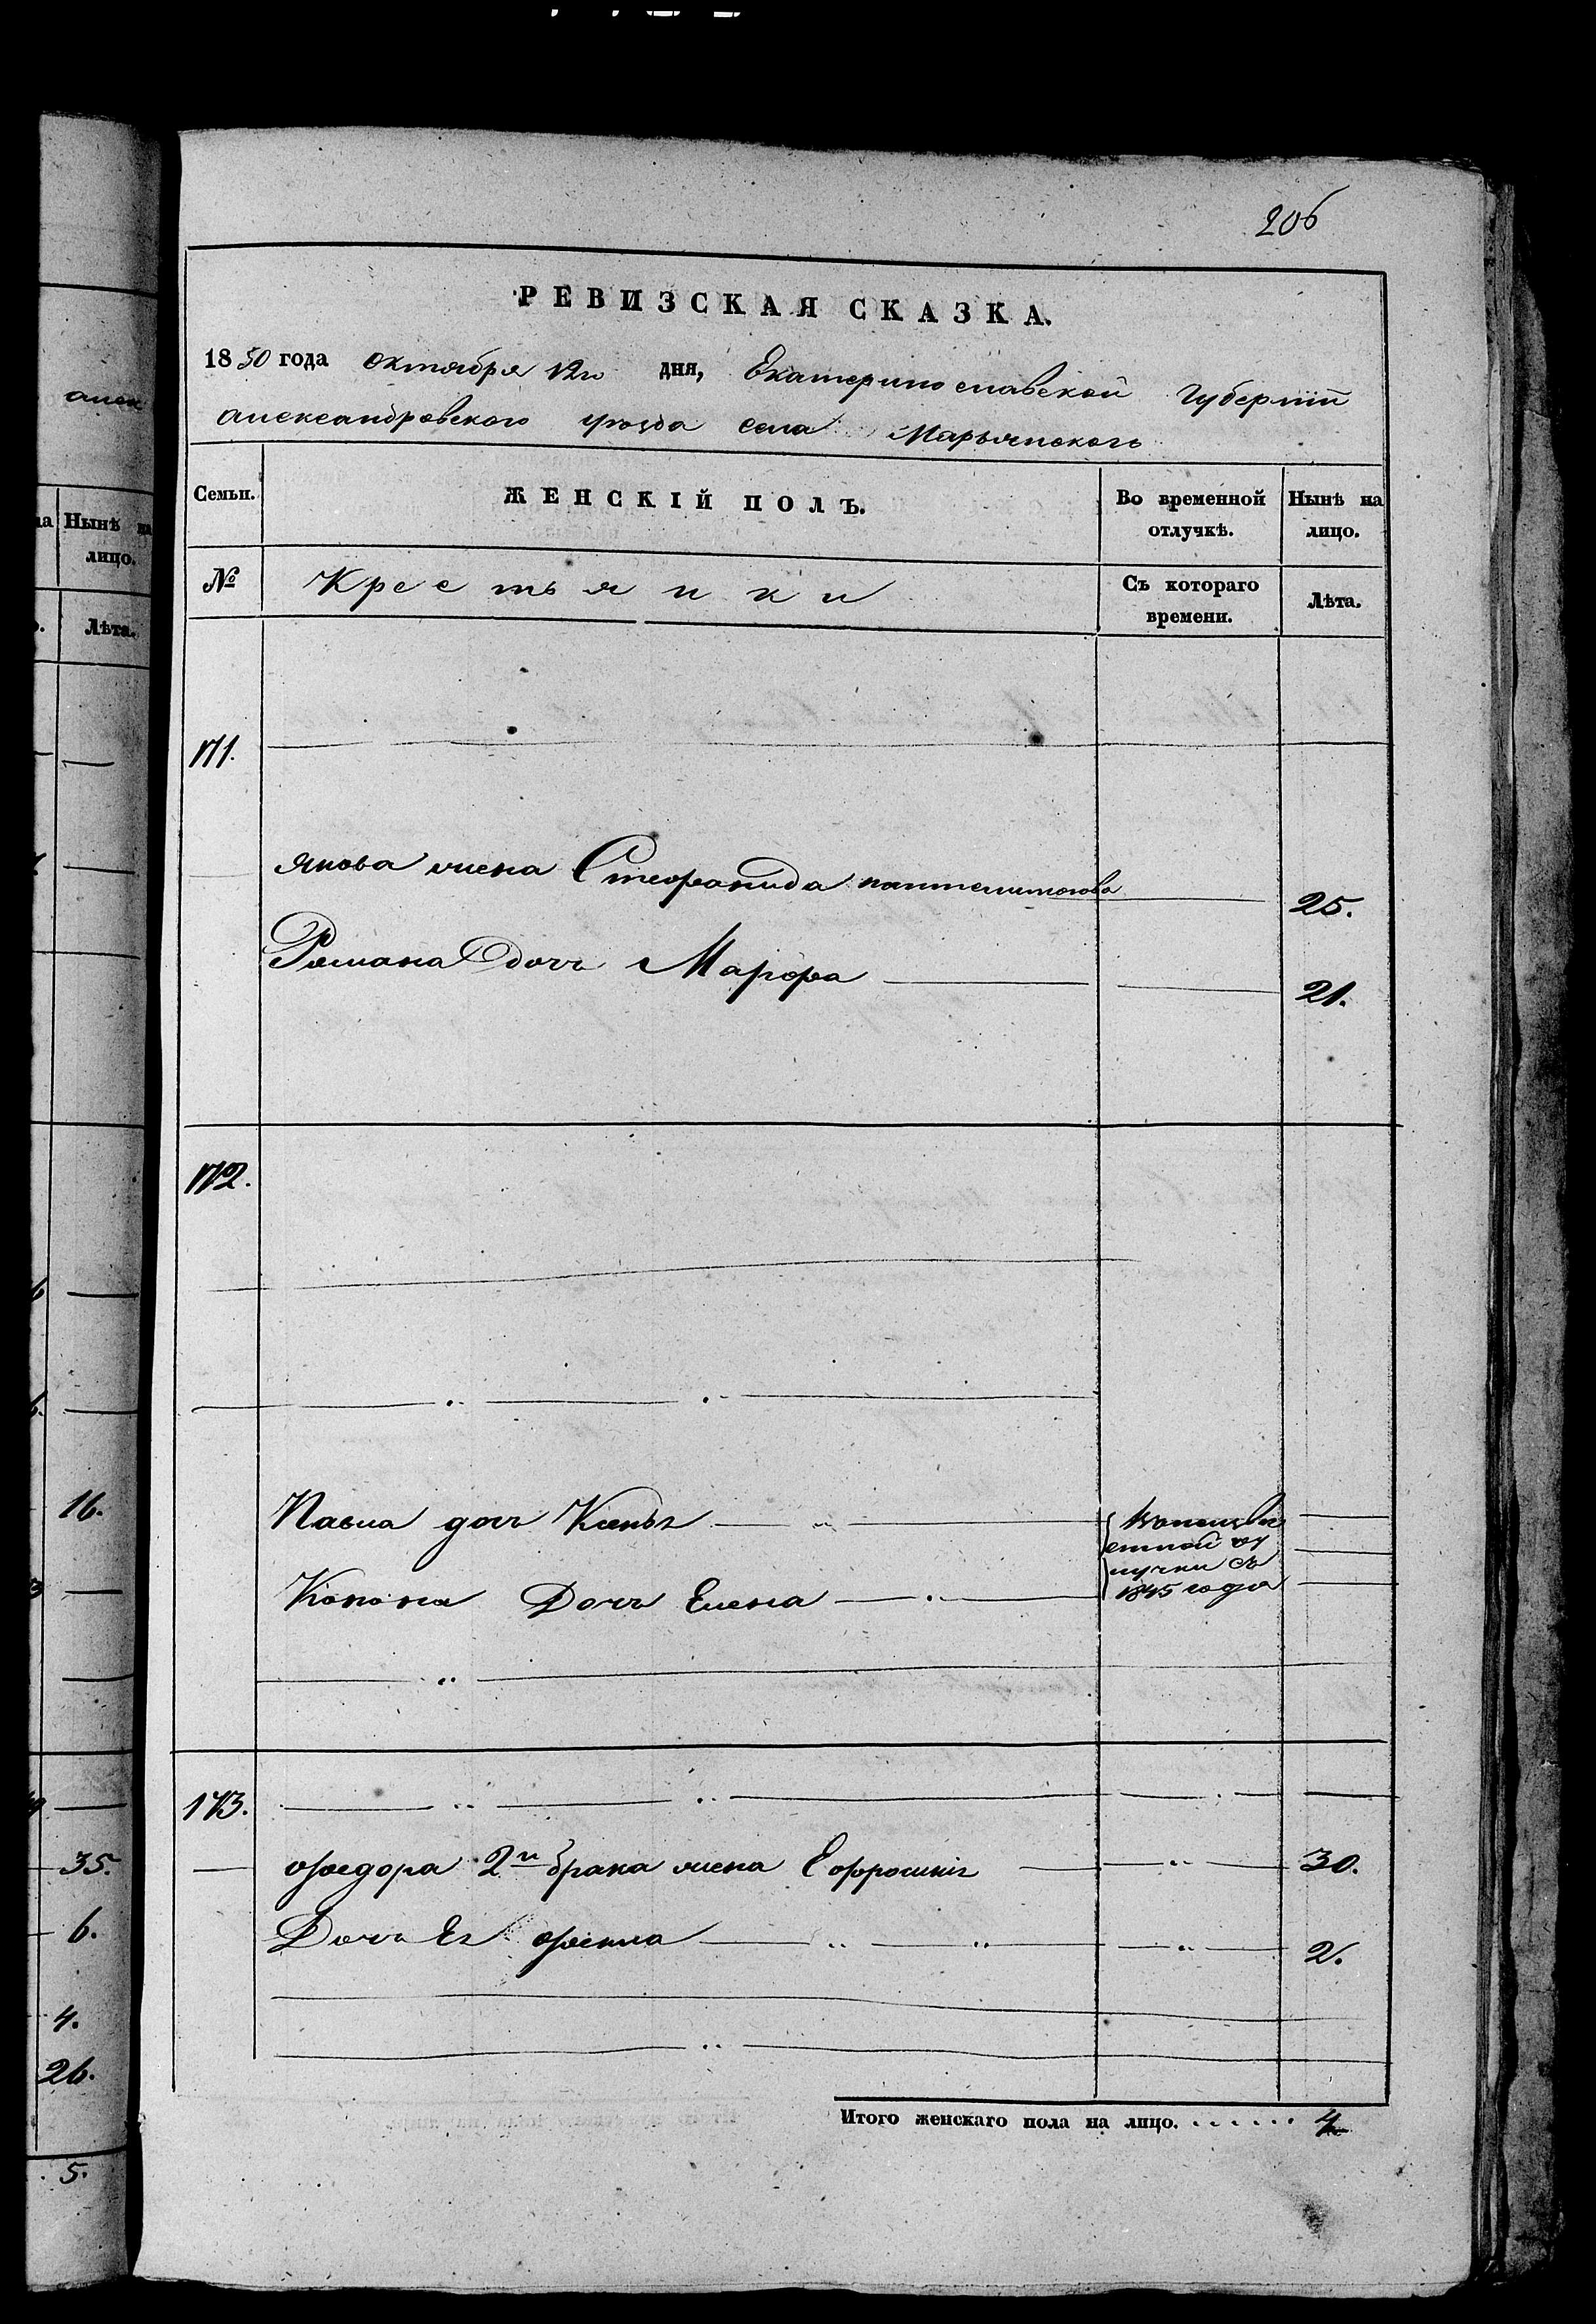 206
РЕВИЗСКАЯ СКАЗКА.
1850 года октября 12го дня, Екатеринославской Губерніи
Александровского уѣзда села Марьянского
Семьи. ЖЕНСКІЙ ПОЛЪ. Во временной отлучкѣ. Нынѣ на лицо.
№ Крестьянки Съ котораго времени. Лѣта.
171.
Якова жена Стефанида 25.
Романа дочь Марфа 21.
172.
Павла дочь
Конона Дочь Елена
1845 года
173.
Федора 2го брака жена Ефросинія 30.
Дочь Ея Фекла 2.
Итого женскаго пола на лицо. . . . . . . 4
алек
Нынѣ на
лицо.
Лѣта.
16.
35.
6.
4.
26.
5.